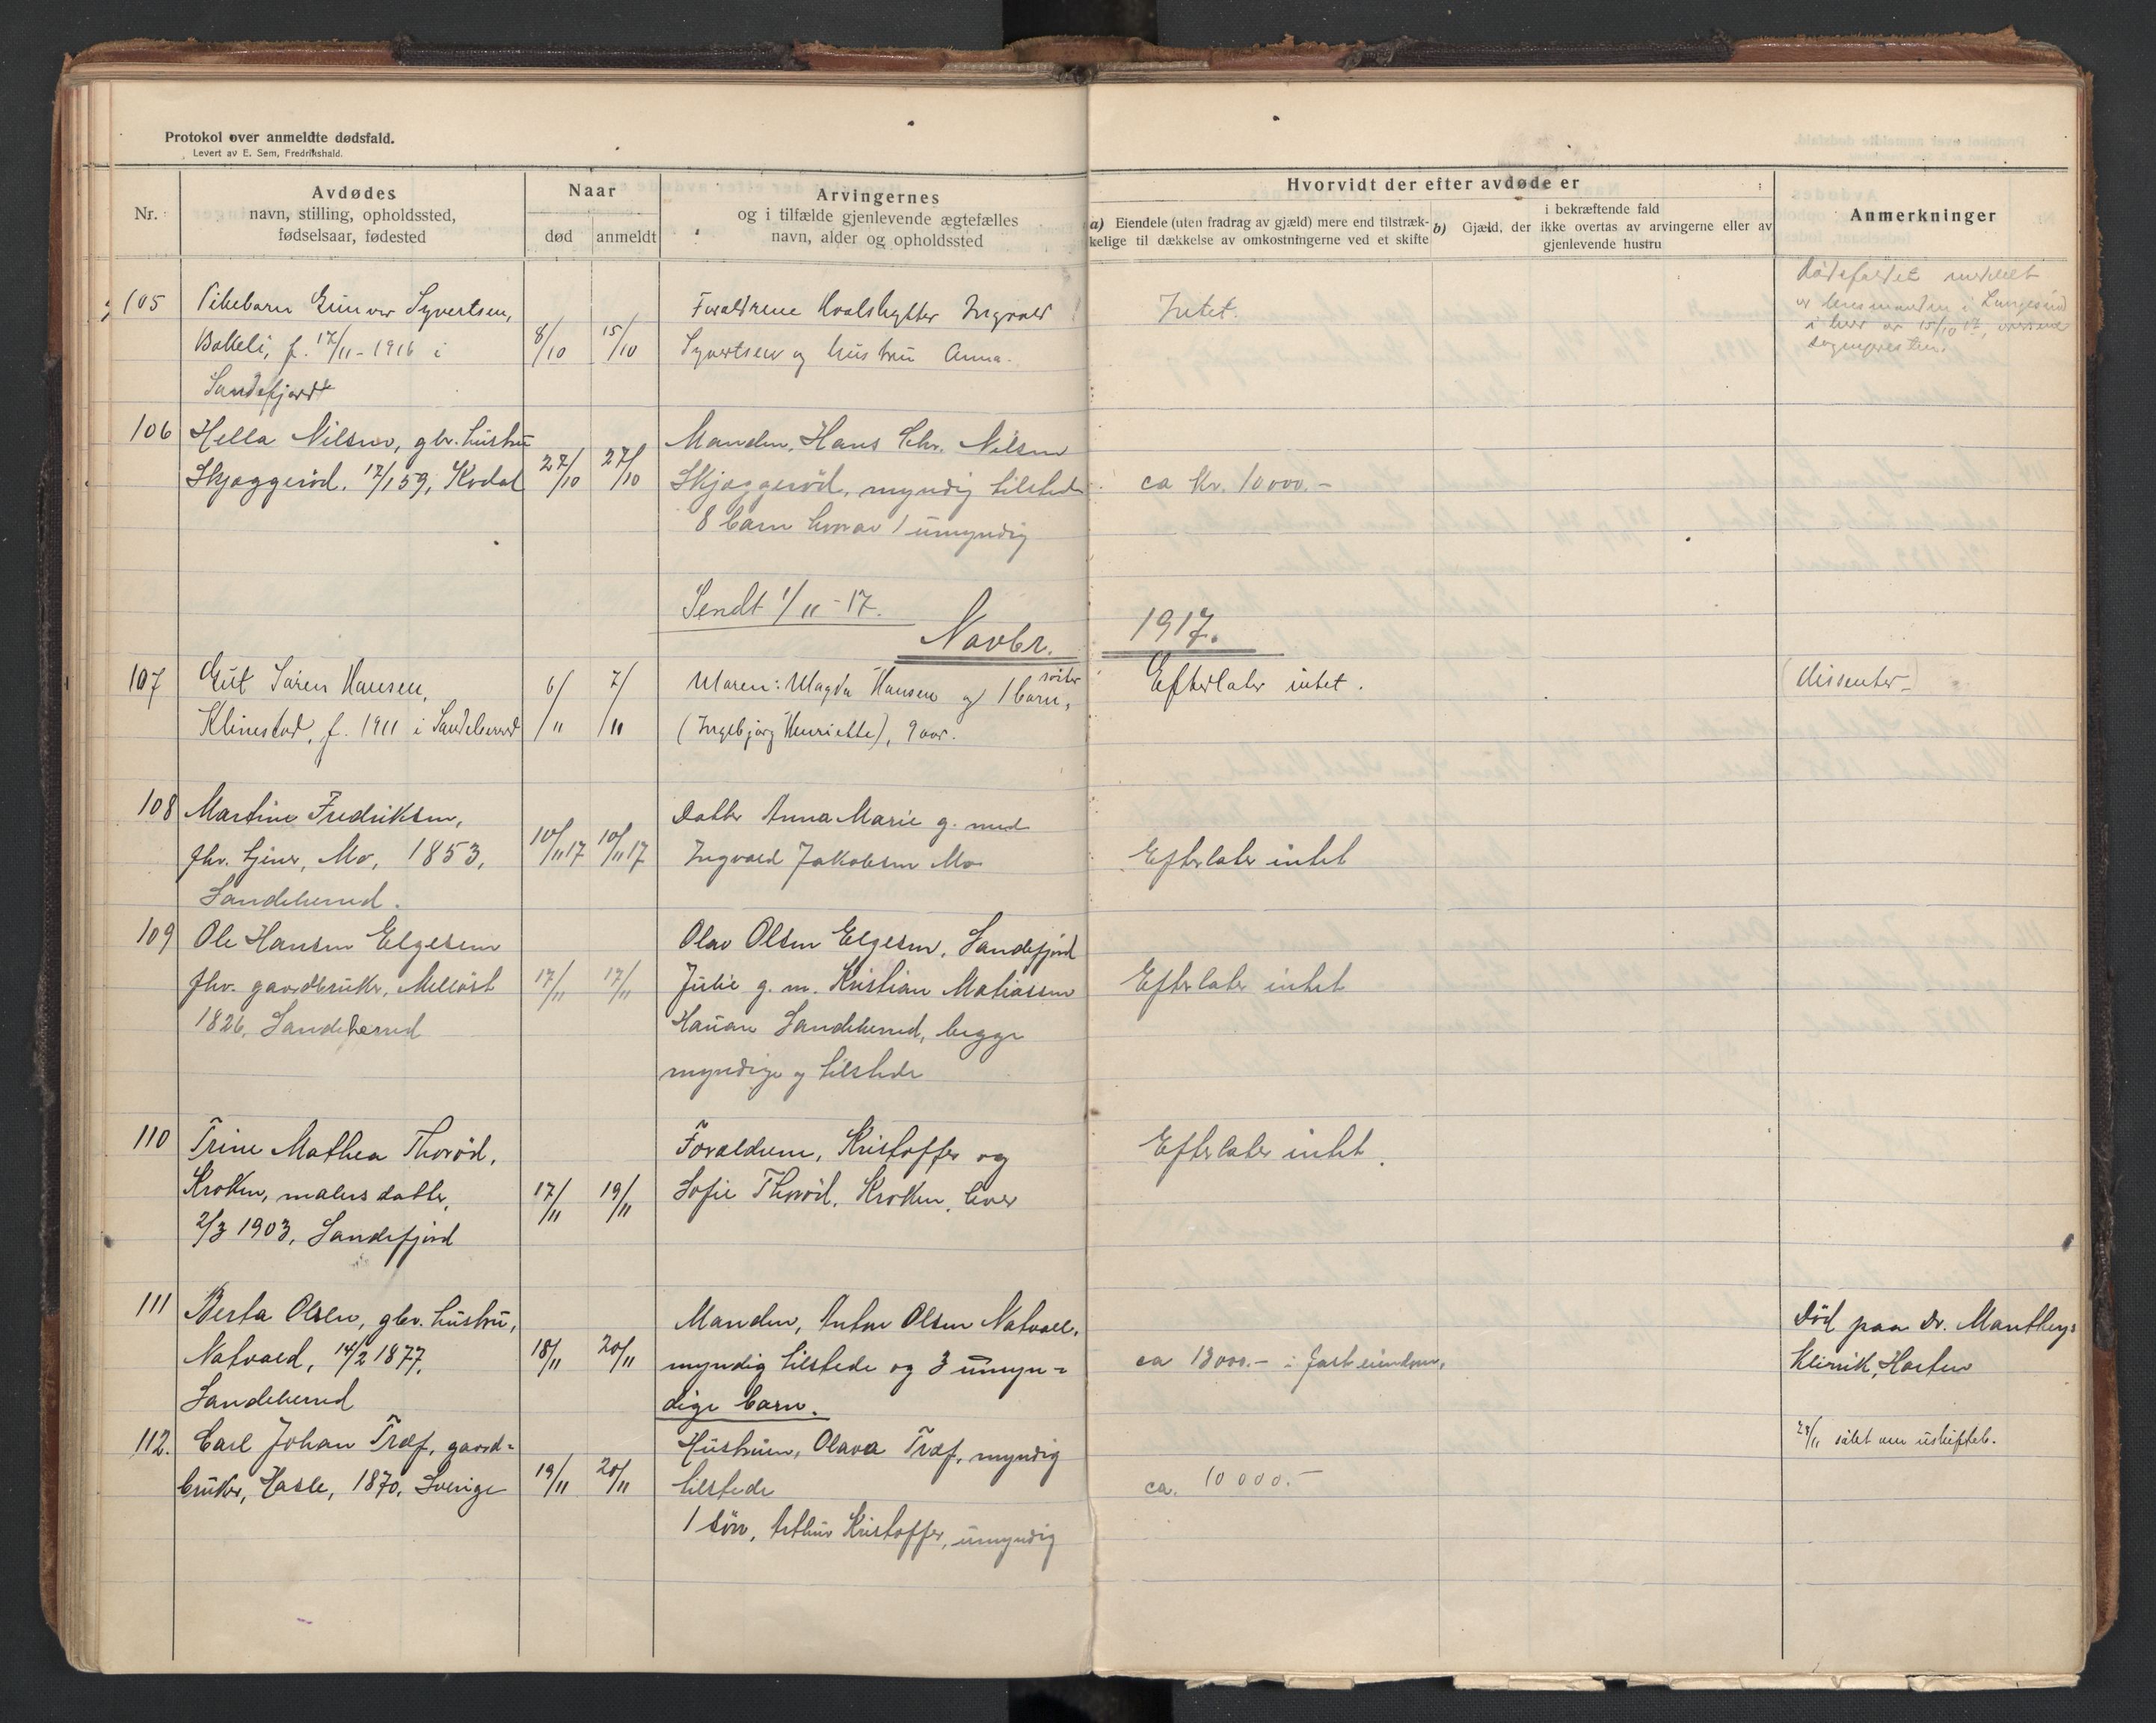 Protokol over anmeldte dødsfald.
Levert av E. Sem, Fredrikshald.
Nr.
Avdødes
navn, stilling, opholdssted,
fødselsaar, fødested
Naar
død
anmeldt
Arvingernes
og i tilfælde gjenlevende ægtefælles
navn, alder og opholdssted
Hvorvidt der efter avdøde er
a) Eiendele (uten fradrag av gjæld) mere end tilstræk-
kelige til dækkelse av omkostningerne ved et skifte
i bekræftende fald
b) Gjæld, der ikke overtas av arvingerne eller av
gjenlevende hustru
Anmerkninger
105 Pikebarn Gunvor Syvertsen,
Bakeli, f. 17/11-1916 i
Sandefjord
8/10 15/10
Forældrene Hvalskytter Ingvald
Syvertsen og hustru Anna.
Intet.
Dødsfaldet meddelt
av lensmanden i Langesund
i brev av 15/10 17,
sognepresten.
106 Hella Nilsen, gbr. hustru
Skjæggerød. 17/1 59, Kodal
27/10 27/10
Manden, Hans Chr. Nilsen
Skjæggerød, myndig tilstede
8 barn hvorav 1 umyndig
ca Kr. 10000.-
Sendt 1/11-17.
Novbr. 1917.
107 Gut Søren Hansen,
Klinestad, f. 1911 i Sandeherred
6/11 7/11
Moren: Magda Hansen og 1 søster barn,
(Ingebjørg Henriette), 9 aar.
Efterlater intet.
(Dissenter)
108 Martine Fredriksen,
fhv. tjener, Mo, 1853,
Sandeherred.
10/11 17 10/11 17
Datter Anna Marie g. med
Ingvald Jakobsen Mo
Efterlater intet
109 Ole Hansen Elgesem
fhv. gaardbruker, Melløst
1826, Sandeherred
17/11 17/11
Olav Olsen Elgesem, Sandefjord
Julie g. m. Kristian Matiassen
Haugan Sandeherred, begge
myndige og tilstede
Efterlater intet
110 Trine Mathea Thorød,
Kroken, malers datter,
2/3 1903, Sandefjord
17/11 19/11
Forældrene, Kristoffer og
Sofie Thorød, Kroken, lever
Efterlater intet.
111 Berta Olsen, gbr. hustru,
Natvald, 14/2 1877,
Sandeherred
18/11 20/11
Manden, Anton Olsen Natvall,
myndig tilstede og 3 umyn-
dige barn.
ca 13000.- i fast eiendom,
Død paa Dr. Mantheys
Klinik, Horten
112. Carl Johan Træf, gaard-
bruker, Hasle, 1870, Sverige
19/11 20/11
Hustruen, Olava Træf, myndig
tilstede
1 søn, Arthur Kristoffer, umyndig
ca. 10000.-
28/11 søkt om uskiftet.